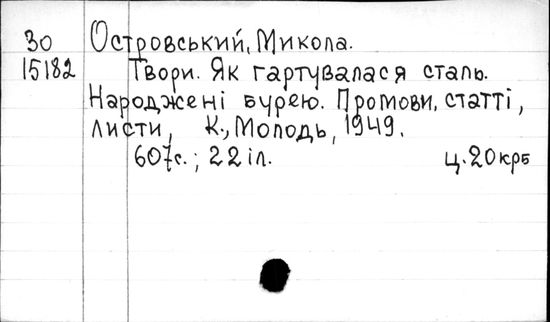 30 Островський, Микола.
15182 Твори. Як гартувалася сталь.
Народжені бурею. Промови, статті,
листи, К., Молодь, 1949.
607с.; 22 іл. ц. 20 крб